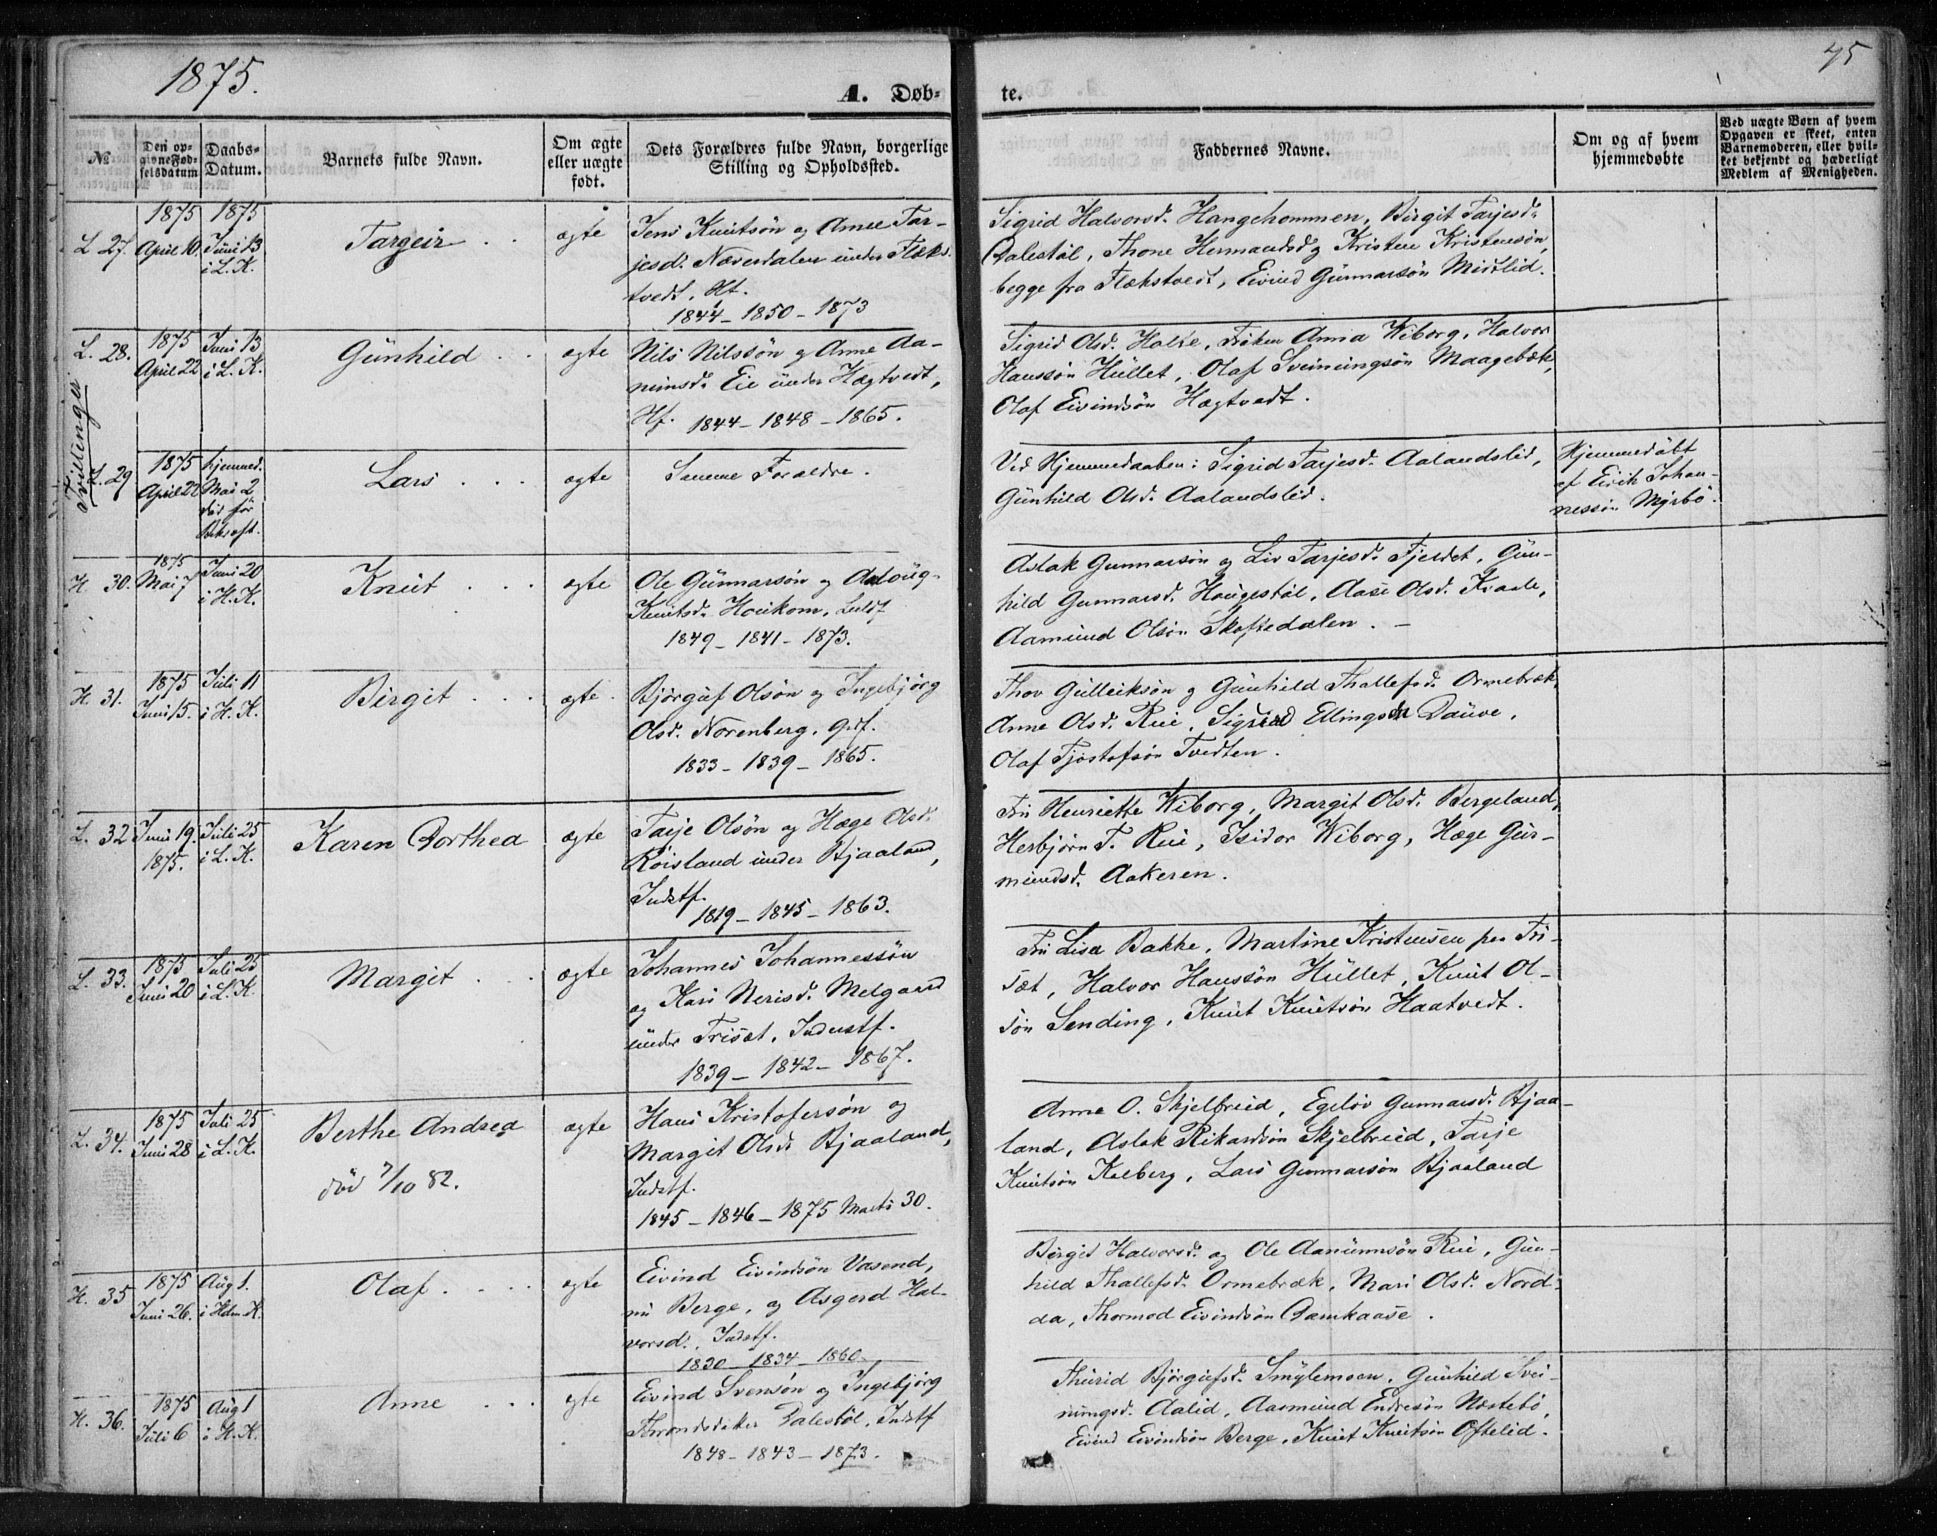 1875.
75
A. Døb-
te.
№
Den op-
givne Fød-
selsdatum
Daabs-
Datum.
Barnets fulde Navn.
Om ægte
eller uægte
født.
Dets Forældres fulde Navn, borgerlige
Stilling og Opholdssted.
Faddernes Navne.
Om og af hvem
hjemmedøbte
Ved uægte Børn af hvem
Opgaven er skeet, enten
Barnemoderen, eller hvil-
ket bekjendt og hæderligt
Medlem af Menigheden.
L. 27.
1875
April 10.
1875
Juni 13
i L. K.
Targeir
ægte
Jens Knutsøn og Anne Tar-
jesd. Næverdalen under Flæks-
tvedt, Hf.
1844 - 1850 - 1873
Sigrid Halvorsd. Hangehommen, Birgit Tarjesd.
Dalestøl, Thone Hermandsd og Kristen Kristensøn,
begge fra Flækstvedt, Eivind Gunnarsøn Midtlid.
Tvillinger
L. 28.
1875
April 22
Juni 13
i L. K.
Gunhild
ægte
Nils Nilssøn og Anne Aa-
nunsd. Eie under Hægtvedt,
Hf. 1844 - 1848 - 1865.
Sigrid Olsd. Holte, Frøken Anna Wiborg, Halvor
Hanssøn Hullet, Olaf Sveinungsøn Maagebæk,
Olaf Eivindsøn Hægtvedt.
L. 29
1875
April 22
hjemmed.
Mai 2
død før
Beksræft.
Lars
ægte
Samme Forældre.
Ved Hjemmedaaben: Sigrid Tarjesd. Aalandslid,
Gunhild Olsd. Aalandslid.
Hjemmedøbt
af Eirik Johan-
nessøn Myrbø.
H. 30.
1875
Mai 7
Juni 20
i H. K.
Knut
ægte
Ole Gunnarsøn og Aaloug
Knutsd. Houkom, Luldf
1849 - 1841 - 1873.
Aslak Gunnarsøn og Liv Tarjesd. Fjeldet, Gun-
hild Gunnarsd. Haugestøl, Aase Olsd. Kraale,
Aamund Olsøn Skoftedalen. -
H. 31.
1875
Juni 15.
Juli 11
i H. K.
Birgit
ægte
Bjørguf Olsøn og Ingebjørg
Olsd. Norenberg, Grf.
1833 - 1839 - 1865.
Thov Gulleiksøn og Gunhild Thallefsd. Ormebræk,
Anne Olsd. Rui, Sigrid Ellingsdr Dauve,
Olaf Tjøstofsøn Tvedten.
L. 32
Juni 19.
1875.
Juli 25
i L. K.
Karen Dorthea
ægte
Tarje Olsøn og Hæge Olsd.
Røisland under Bjaaland,
Indstf.
1819 - 1845 - 1863.
Fru Henriette Wiborg, Margit Olsd. Bergeland,
Herbjørn T. Rui, Isidor Wiborg, Hæge Gur-
mundsd. Aakeren.
L. 33.
1875
Juni 20
Juli 25
i L. K.
Margit
ægte
Johannes Johannessøn
og Kari Nerisd. Melgaard
under Trisæt, Industf.
1839 - 1842 - 1867.
Fru Lisa Bakke, Martine Kristensen paa Tri-
sæt, Halvor Hanssøn Hullet, Knut Ol-
søn Sending, Knut Knutsøn Haatvedt.
L. 34.
1875
Juni 28
Juli 25
i L. K.
Berthe Andrea
død 7/10 82.
ægte
Hans Kristofersøn og
Margit Olsd. Bjaaland,
Indstf.
1845 - 1846 - 1875 Marts 30.
Anne O. Skjelbreid, Egeløv Gunnarsd. Bjaa-
land, Aslak Rikardsøn Skjelbreid, Tarje
Knutsøn Kalberg, Lars Gunnarsøn Bjaaland
H. 35
1875
Juni 26.
Aug 1.
i Hdn. K.
Olaf
ægte
Eivind Eivindsøn Vasend,
nu Berge, og Asgerd Hal-
vorsd., Indstf.
1830 - 1834 - 1860.
Birgit Halvorsd. og Ole Aanunnsøn Rui, Gun-
hild Thallefsd. Ormebræk, Mari Olsd. Nord-
da, Thormod Eivindsøn Damkaase.
H. 36.
1875
Juli 6
Aug 1
i H. K.
Anne
ægte
Eivind Svensøn og Ingebjørg
Throndsdater Dalestøl, Indstf
1848 - 1843 - 1873.
Thurid Bjørgufsd. Smylemoen, Gunhild Svei-
nungsd. Aalid, Aasmund Endresøn Næstebø,
Eivind Eivindsøn Berge, Knut Knutsøn Oftelid.